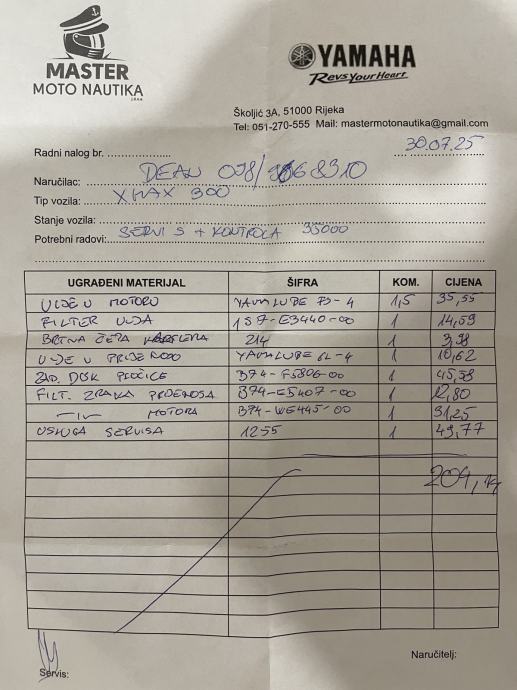 MASTER
MOTO NAUTIKA
YAMAHA
Revs Your Heart
Školjić 3A, 51000 Rijeka
Tel: 051-270-555 Mail: mastermotonautika@gmail.com
Radni nalog br. 30.07.25
Naručilac: DEAN 098/
Tip vozila: XMAX 300
Stanje vozila:
Potrebni radovi: SERVIS + KONTROLA 35000
UGRAĐENI MATERIJAL ŠIFRA KOM. CIJENA
ULJE U MOTORU YAMALUBE 1,5 35,55
FILTER ULJA 1S7-E3440-00 1 14,59
BRTNA ČEPA KARTERA 214 1 3,98
ULJE U PRIJENOSU YAMALUBE 1 10,62
ZAD. DISK PLOČICE B74-F5806-00 1 45,58
FILT. ZRAKA PRIJENOSA B74-E5407-00 1 12,80
-II- MOTORA B74-WE445-00 1 31,25
USLUGA SERVISA 1255 1 49,77
204,14
Servis:
Naručitelj: